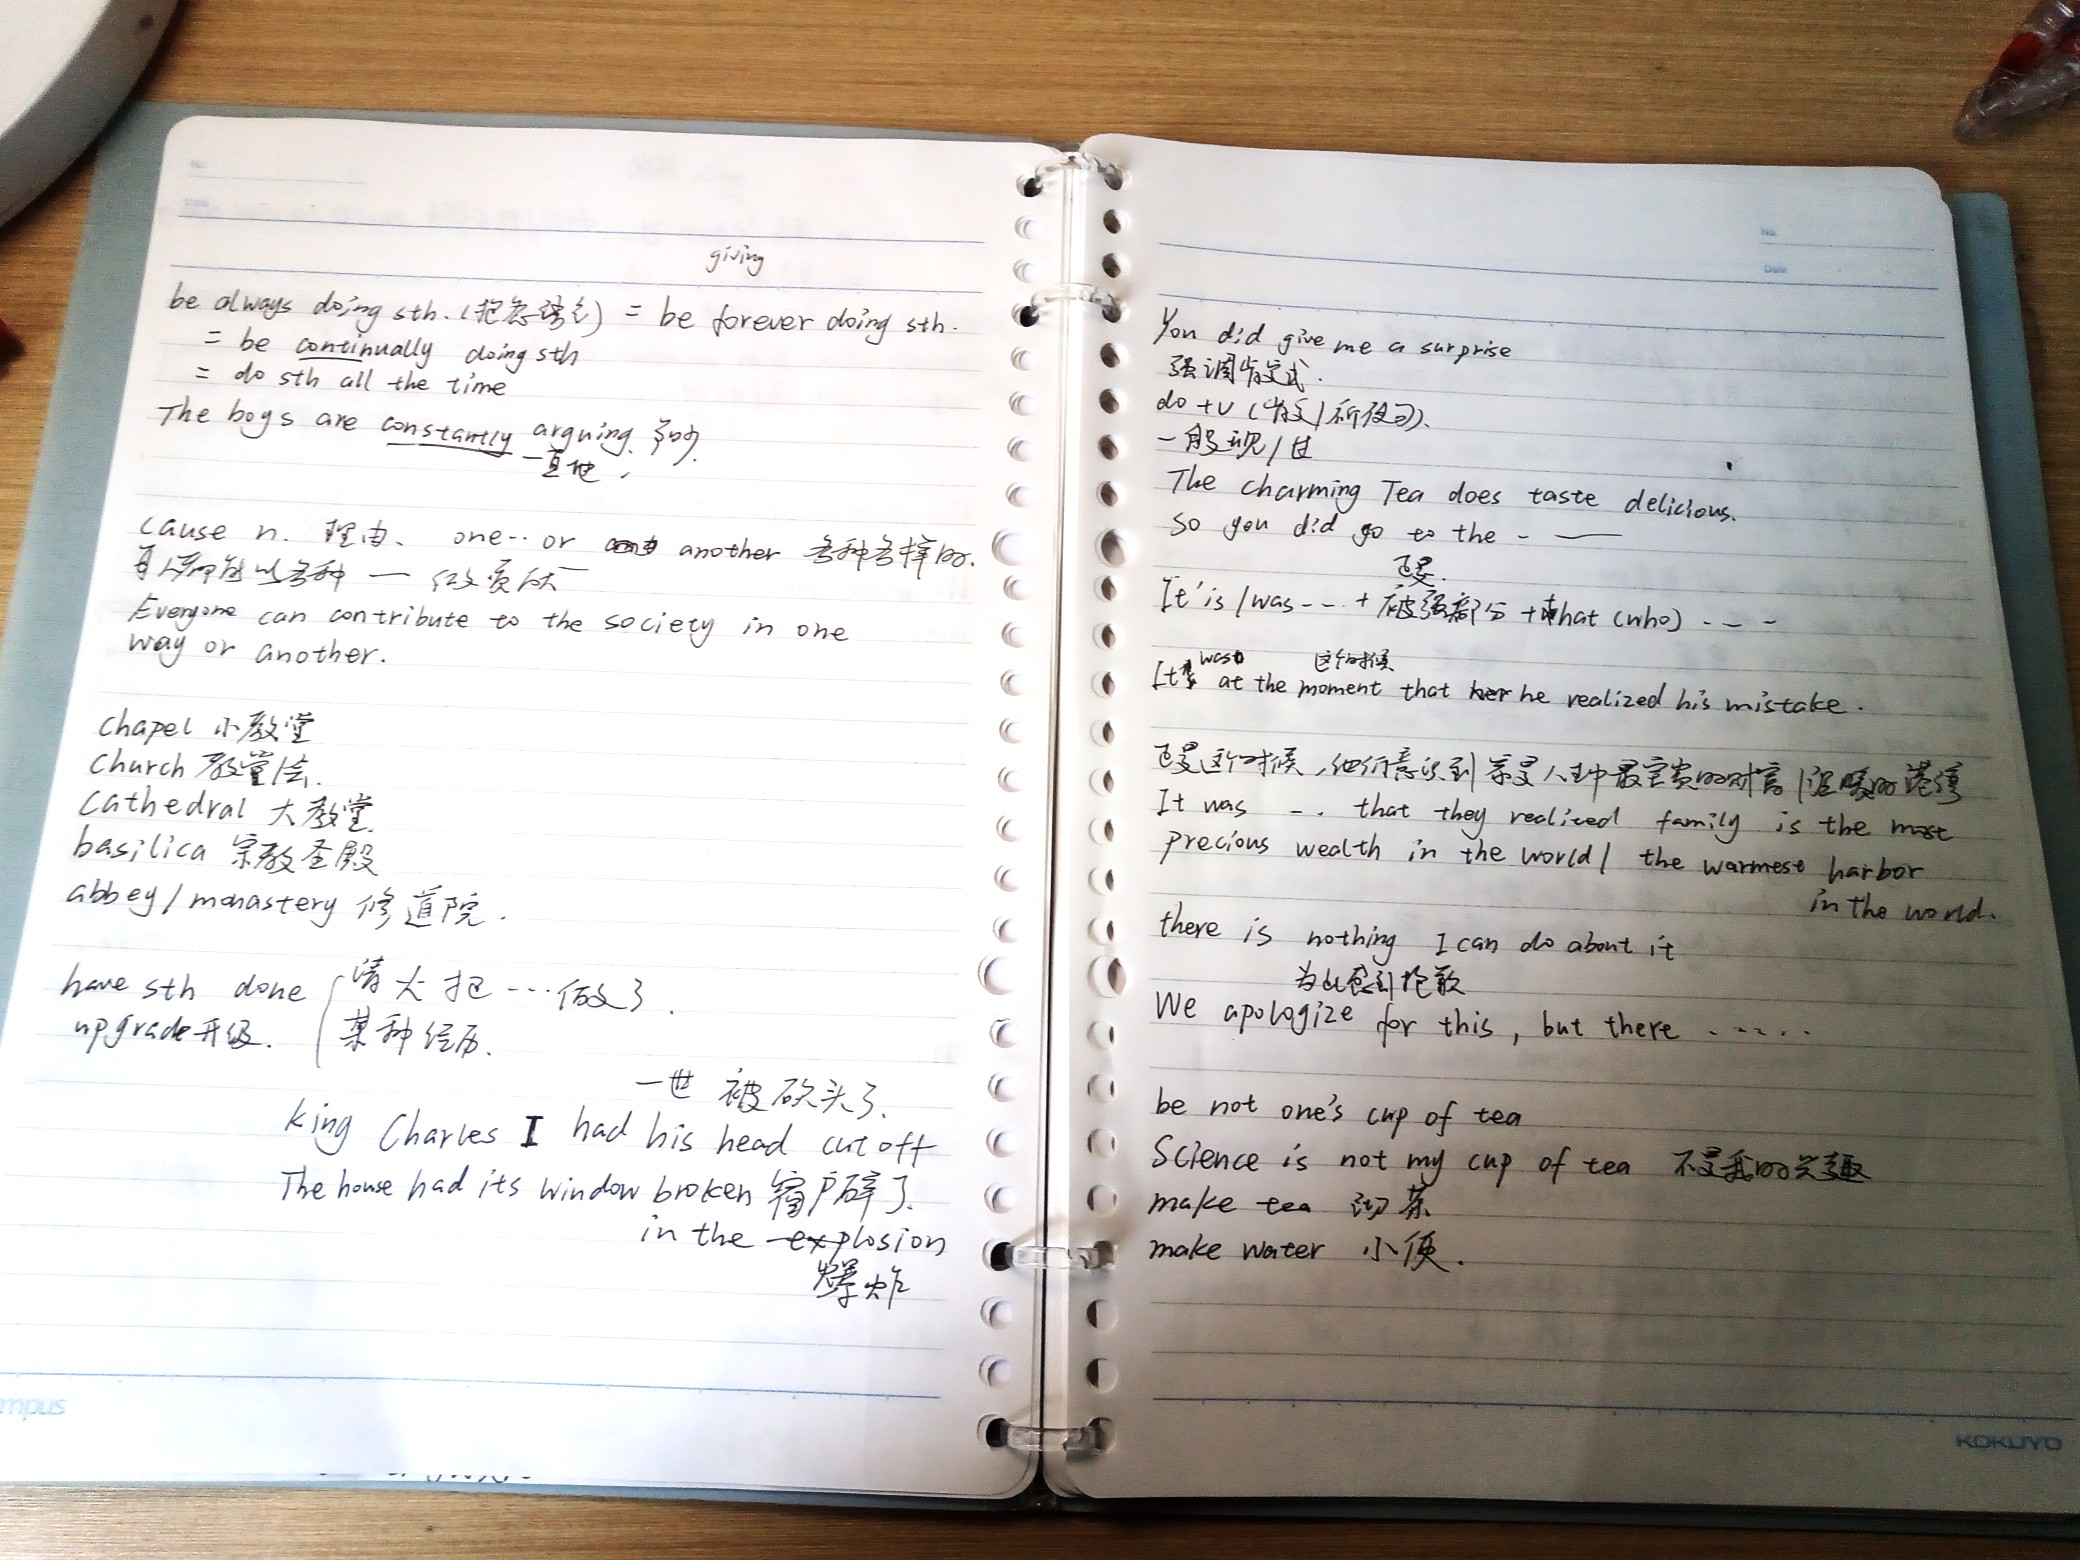 No.
Date
giving
be always doing sth. (抱怨语气) = be forever doing sth.
= be continually doing sth
= do sth all the time
The boys are constantly arguing. 争吵.
一直地,
cause n. 理由、 one.. or another 各种各样的.
每人都能以各种 — 做贡献
Everyone can contribute to the society in one
way or another.
chapel 小教堂
church 教堂/会.
cathedral 大教堂.
basilica 宗教圣殿
abbey/monastery 修道院.
have sth done 请人把…做了.
upgrade 升级. 某种经历.
一世 被砍头了.
King Charles I had his head cut off
The house had its window broken 窗户碎了.
in the explosion
爆炸
mpus
No.
Date
You did give me a surprise
强调 式.
do + v
一般现/过
The charming Tea does taste delicious.
so you did go to the - —
正是.
It is/was --- + 被强部分 + that (who) - - -
was 这个时候
It at the moment that he realized his mistake.
正是这个时候,他们意识到家是人生中最宝贵的财富/温暖的港湾
It was - - . that they realized family is the most
precious wealth in the world/ the warmest harbor
in the world.
there is nothing I can do about it
为此感到抱歉
We apologize for this, but there ......
be not one's cup of tea
Science is not my cup of tea 不是我的兴趣
make tea 沏茶
make water 小便.
KOKUYO